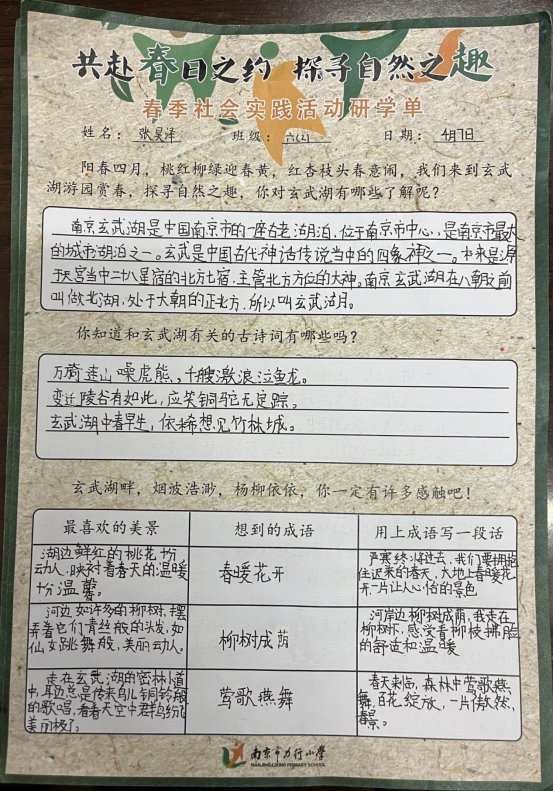 共赴春日之约 探寻自然之趣
春季社会实践活动研学单
姓名：张昊泽 班级：六(2) 日期：4月7日
阳春四月，桃红柳绿迎春黄，红杏枝头春意闹，我们来到玄武
湖游园赏春，探寻自然之趣，你对玄武湖有哪些了解呢？
南京玄武湖是中国南京市的一座古老湖泊，位于南京市中心，是南京市最大
的城市湖泊之一。玄武是中国古代神话传说当中的四象神之一。本来是源
于天宫当中二十八星宿的北方七宿，主管北方方位的大神。南京玄武湖在八朝之前
叫做北湖，处于大朝的正北方，所以叫玄武湖。
你知道和玄武湖有关的古诗词有哪些吗？
万骑连山噪虎熊，千艘激浪泣鱼龙。
变迁陵谷有如此，应笑铜驼无定踪。
玄武湖中春早生，依稀想见竹林城。
玄武湖畔，烟波浩渺，杨柳依依，你一定有许多感触吧！
最喜欢的美景 想到的成语 用上成语写一段话
湖边鲜红的桃花十分
动人，映衬着春天的温暖
十分温馨。
春暖花开
严寒终将过去，我们要拥抱
住迟来的春天，大地上春暖花
开，一片让人心怡的景色
河边如许多的柳树，摆
弄着它们青丝般的头发，如
仙女跳舞般，美丽动人。
柳树成荫
河岸边柳树成荫，我走在
柳树下，感受着柳枝拂脸
的舒适和温暖
走在玄武湖的密林小道
中，耳边总是传来鸟儿铜铃般
的歌唱，看着天空中群鸟纷飞
美丽极了。
莺歌燕舞
春天来临，森林中莺歌燕
舞，百花绽放，一片傲然
春景。
南京市力行小学
NANJING LIXING PRIMARY SCHOOL